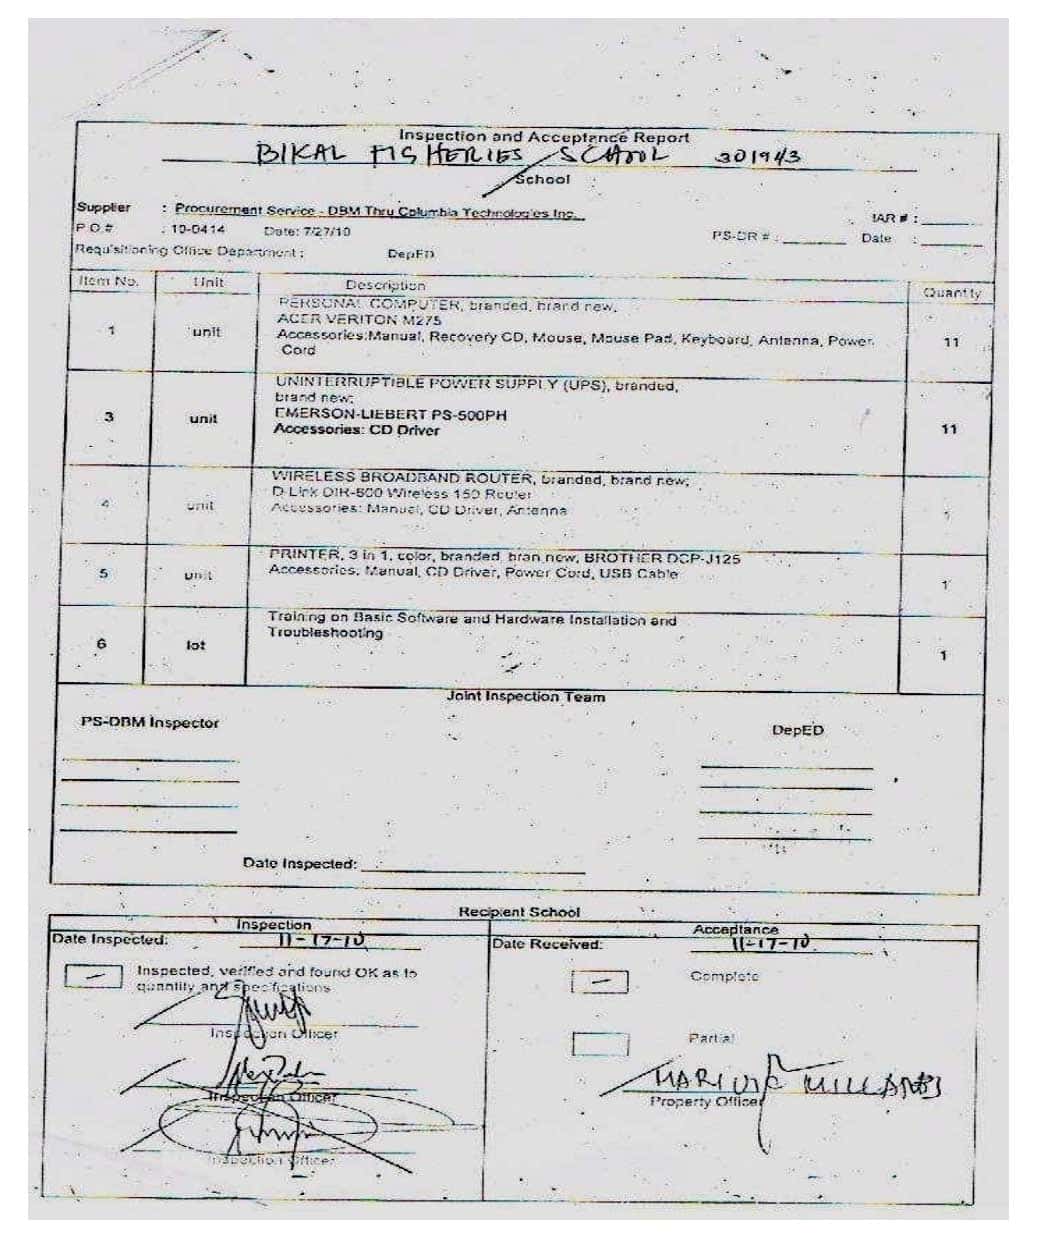 Inspection and Acceptance Report
BIKAL FISHERIES SCHOOL 301943
School
Supplier : Procurement Service - DBM Thru Columbia Technologies Inc. IAR # :
P.O.# : 10-0414 Date: 7/27/10 PS-DR # : Date :
Requisitioning Office Department : DepED
Item No. Unit Description Quantity
PERSONAL COMPUTER, branded, brand new,
ACER VERITON M275
1 unit Accessories:Manual, Recovery CD, Mouse, Mouse Pad, Keyboard, Antenna, Power 11
Cord
UNINTERRUPTIBLE POWER SUPPLY (UPS), branded,
brand new;
3 unit EMERSON-LIEBERT PS-500PH 11
Accessories: CD Driver
WIRELESS BROADBAND ROUTER, branded, brand new;
D-Link DIR-600 Wireless 150 Router
4 unit Accessories: Manual, CD Driver, Antenna 1
PRINTER, 3 in 1, color, branded, bran new, BROTHER DCP-J125
5 unit Accessories, Manual, CD Driver, Power Cord, USB Cable 1
Training on Basic Software and Hardware Installation and
6 lot Troubleshooting 1
Joint Inspection Team
PS-DBM Inspector DepED
Date Inspected:
Recipient School
Inspection Acceptance
Date Inspected: 11-17-10 Date Received: 11-17-10
Inspected, verified and found OK as to Complete
quantity and specifications
Inspection Officer Partial
Inspection Officer
Property Officer
Inspection Officer